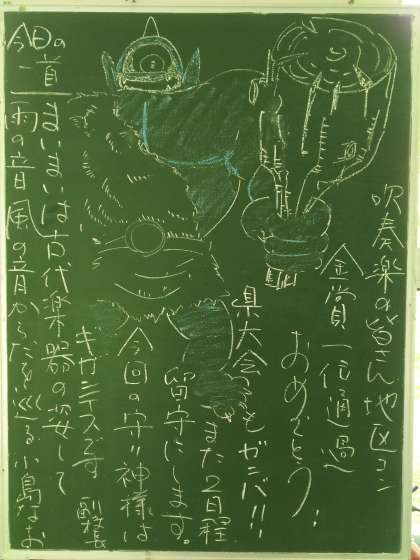 吹奏楽の皆さん地区コン
金賞一位通過
おめでとう!!
県大会でもガンバ!!
また2日程
留守にします。
今回の守り神様は
キガンテスです
副校長
今日の一首
まいまいは古代楽器の姿して
雨の音風の音からだを巡る 小島なお